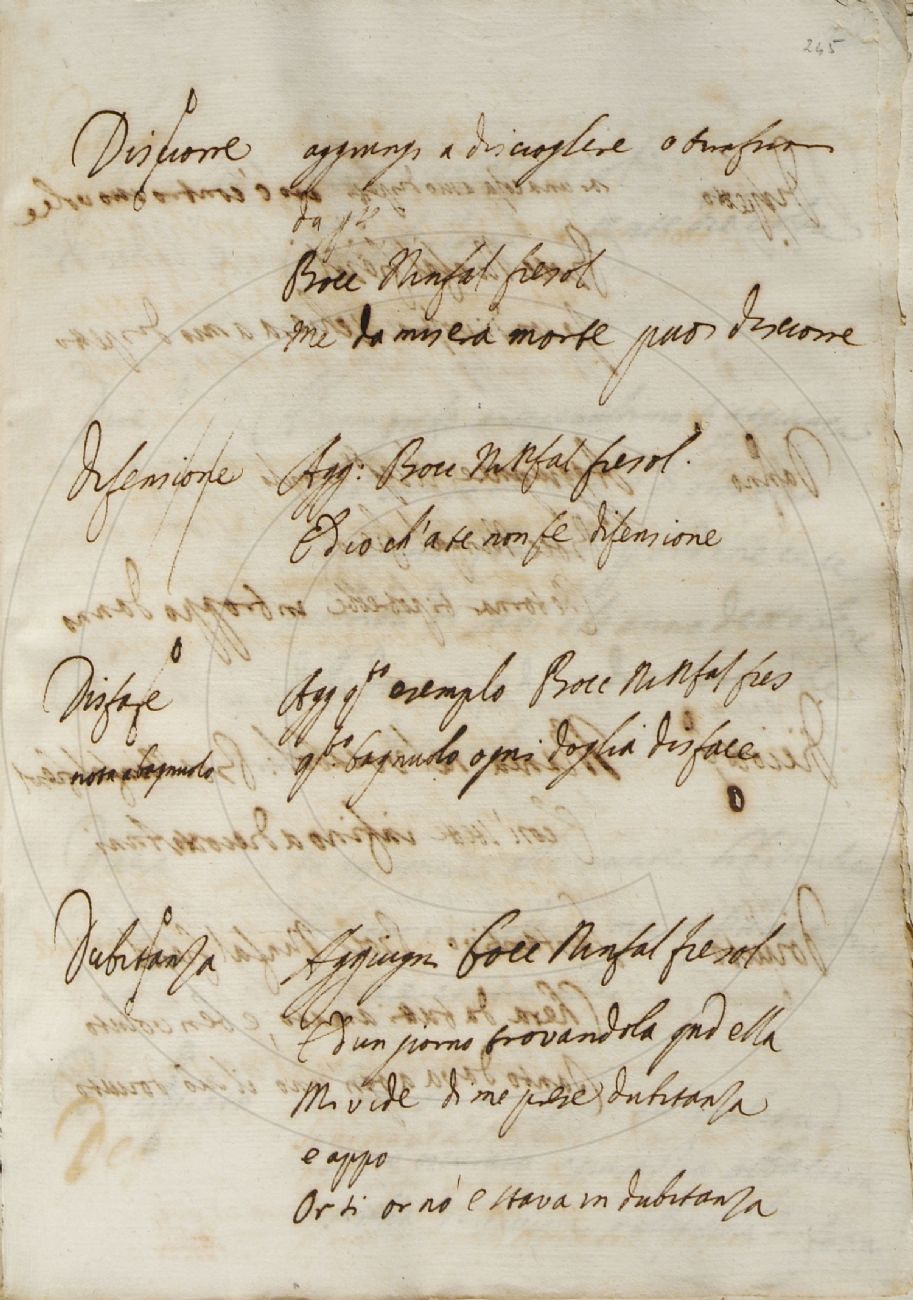 245
Disciorre aggiungi a disciogliere o
da q.to
Bocc Ninfal fiesol
Me da misera morte puoi disciorre
Difensione Agg: Bocc Ninfal fiesol.
Ed io ch'a te non fe difensione
Disfare Agg q.to esemplo Bocc Ninfal fies
nota bagnuolo q.to bagnuolo ogni doglia disface
Dubitanza Aggiugni Bocc Ninfal fiesol
Ed un giorno trovandola qnd ella
Mi vide di me prese dubitanza
e appo
Or sì or nò e stava in dubitanza